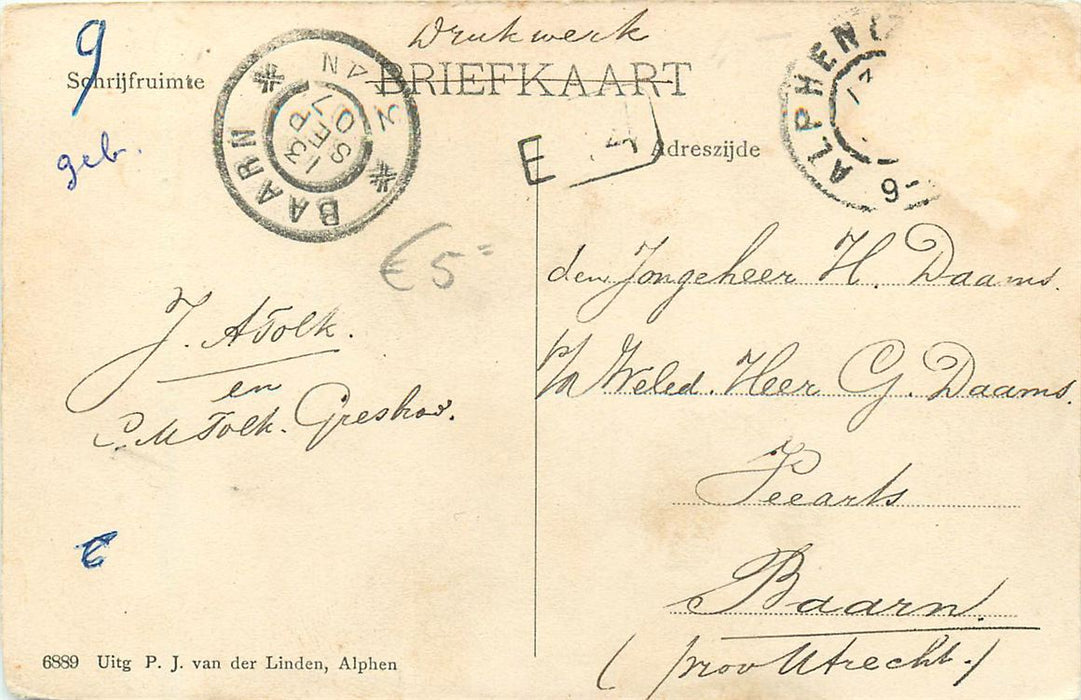 Drukwerk
BRIEFKAART
9
Schrijfruimte
geb.
BAARN
13
SEP
07
4 N
ALPHEN
Adreszijde
E
€ 5=
den Jongeheer H. Daams.
p/a Weled. Heer G. Daams.
Baarn.
(prov Utrecht.)
J. A Tolk.
en
P. M Tolk. Greshov.
6889 Uitg P. J. van der Linden, Alphen